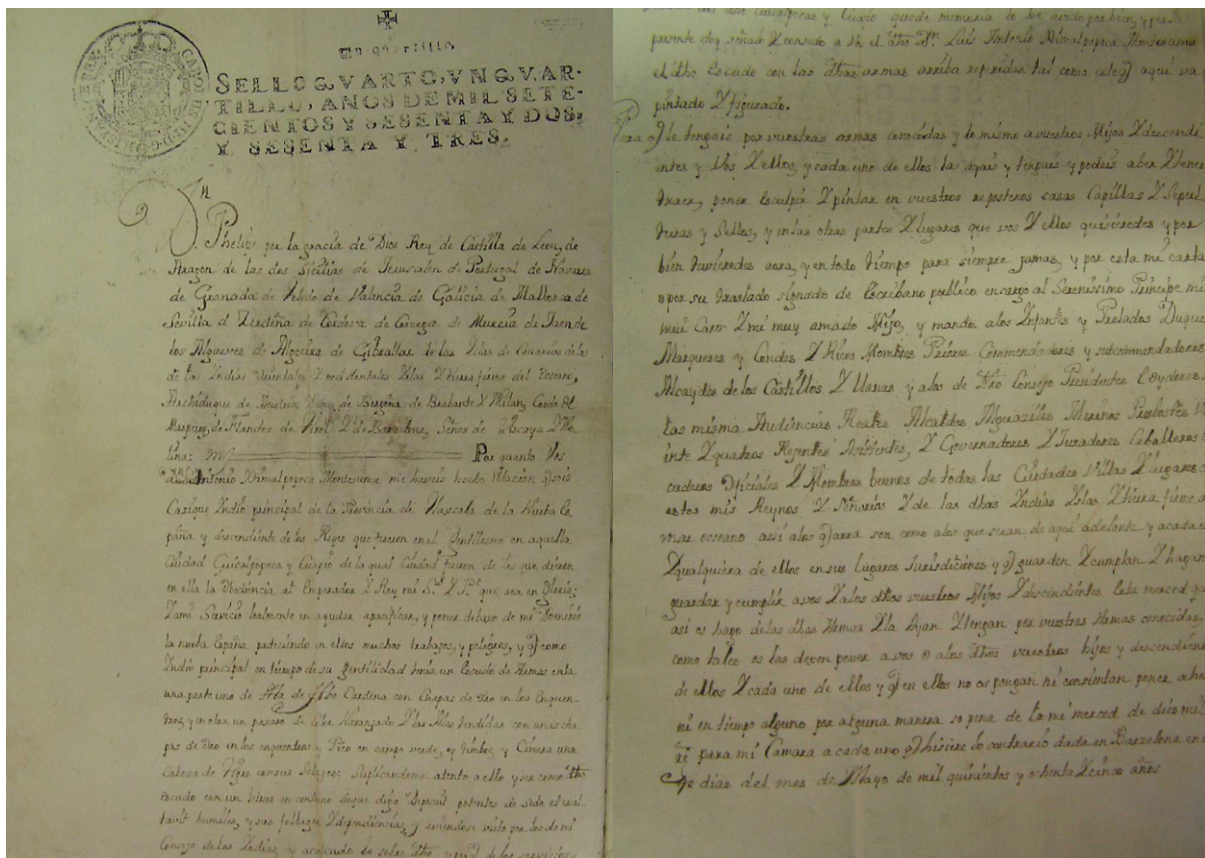 Un quartillo
SELLO QVARTO, VN QVAR-
TILLO, AÑOS DE MIL SETE-
CIENTOS Y SESENTA Y DOS,
Y SESENTA Y TRES.
Dn
Phelipe por la gracia de Dios Rey de Castilla de Leon, de
Aragon de las dos Sicilias de Jerusalen de Portugal de Navarra
de Granada de Toledo de Valencia de Galicia de Mallorca de
Sevilla de Cerdeña de Cordova de Corcega de Murcia de Jaen de
los Algarves de Algecira de Gibraltar de las Islas de Canarias de las
de las Yndias orientales Y occidentales Yslas Y tierra firme del Occeano,
Archiduque de Austria, Duq. de Borgoña de Brabante Y Milan, Conde de
de Flandes de Tirol Y de Barcelona, Señor de Viscaya Y Mo
lina: Por quanto Vos
Antonio Montesuma me haveis hecho relacion q) sois
Cazique Yndio principal de la Provincia de Tlascala de la Nueba Es
paña y descendiente de los Reyes que fueron en el Jentilismo en aquella
Ciudad y de la qual Ciudad fueron de los que dieron
en ella la Obediencia al Emperador Y Rey mi Sr. Y Pe. que sea en Gloria;
Yami Servicio lealmente en ayudar apacificar, y poner debaxo de mi Dominio
la nueba España padeciendo en ellos muchos trabajos, y peligros, y q) como
Yndio principal en tiempo de su gentilidad tenia un Escudo de Armas en la
una parte uno de con Chapas de Oro en los Enquen
tros, y en otra un paxaro de color Naranzado Y las Alas tendidas con unas cha
pas de Oro en los enquentros y Pico en campo verde, y timbre, y Cimera una
Cabeza de Tigre con sus Suplicandome atento a ello y ser como dho
escudo con un letrero en contorno deque diga Deposuit potentes de sede et exal
tavit humiles, y sus follages Y dependiencias, y aviendose visto por los de mi
Consejo de las Yndias, y acatando lo sobre dho y de los servicios
y quede memoria lo he avido por bien, y por la
presente doy señalo Y consedo a Vos el dho Dn. Luis Antonio Montesuma
el dho Escudo con las dhas armas arriba referidas tal como este q) aqui va
pintado Y figurado.
Para q) le tengais por vuestras armas conocidas y lo mismo a vuestros Hijos Y descendi
entes y Vos Y ellos, y cada uno de ellos las ayais y tengais y podeis aber Y tener
traer, poner Esculpir Y pintar en vuestros reposteros casas Capillas Y Sepul
turas y Sellos, y en las otras partes Y lugares que vos Y ellos quisieredes y por
bien tuvieredes aora, y en todo tiempo para siempre jamas, y por esta mi carta
o por su traslado signado de Escribano publico encargo al Serenissimo Principe mi
mui Caro Y mi muy amado Hijo, y mando alos Ynfantes y Prelados Duques
Marqueses y Condes Y Ricos Hombres Priores Commendadores y subcommendadores
Alcaydes de los Castillos Y llanas y alos de dho Consejo Presidentes Y oydores
las misma Audiencias Reales Alcaldes Alguaziles Merinos Prebostes
inte Y quatros Rejentes Asistentes, Y Governadores Y Juradores Caballeros
cuderos Oficiales Y Hombres buenos de todas las Ciudades Villas Y lugares
estos mis Reynos Y Señorios Y de las dhas Yndias Yslas Y tierra firme
mar occeano assi alos q) aora son como alos que seran de aqui adelante y acada
Y qualquiera de ellos en sus lugares Jurisdiciones y q) guarden Y cumplan Y hagan
guardar y cumplir a vos Y alos dhos vuestros Hijos Y descendientes esta merced
asi os hago delas dhas Armas Y la Ayan Y tengan por vuestras Armas conocidas,
como tales os las dexen poner a vos o alos dhos vuestros hijos y descendien
de ellos Y cada uno de ellos y q) en ellos no os pongan ni consientan poner
ni en tiempo alguno por alguna manera so pena de la mi merced de diez mil
para mi Camara a cada uno q) hisiere lo contrario dada en Barzelona en
dias del mes de Mayo de mil quinientos y ochenta Y cinco años